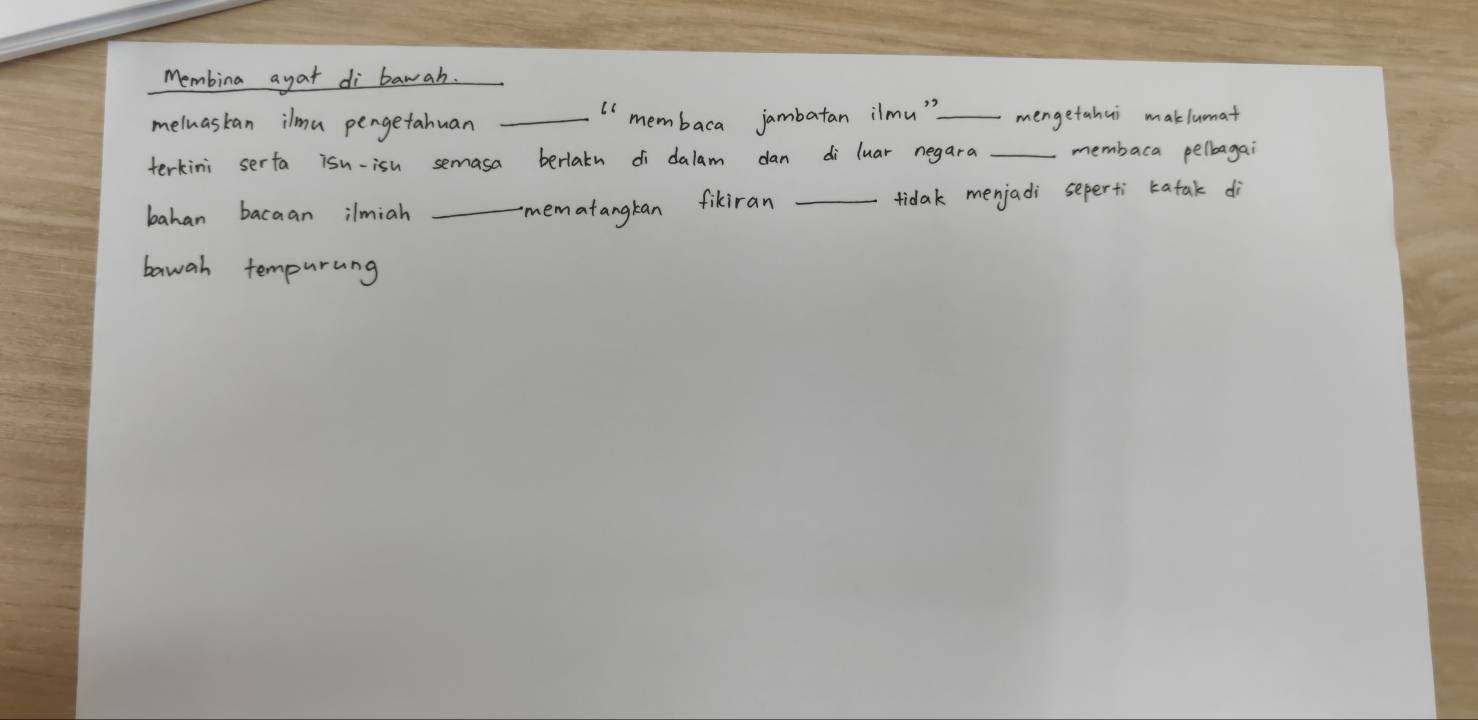 Membina ayat di bawah.
meluaskan ilmu pengetahuan ______ "membaca jambatan ilmu" ______ mengetahui maklumat
terkini serta isu-isu semasa berlaku di dalam dan di luar negara ______ membaca pelbagai
bahan bacaan ilmiah ______ mematangkan fikiran ______ tidak menjadi seperti katak di
bawah tempurung